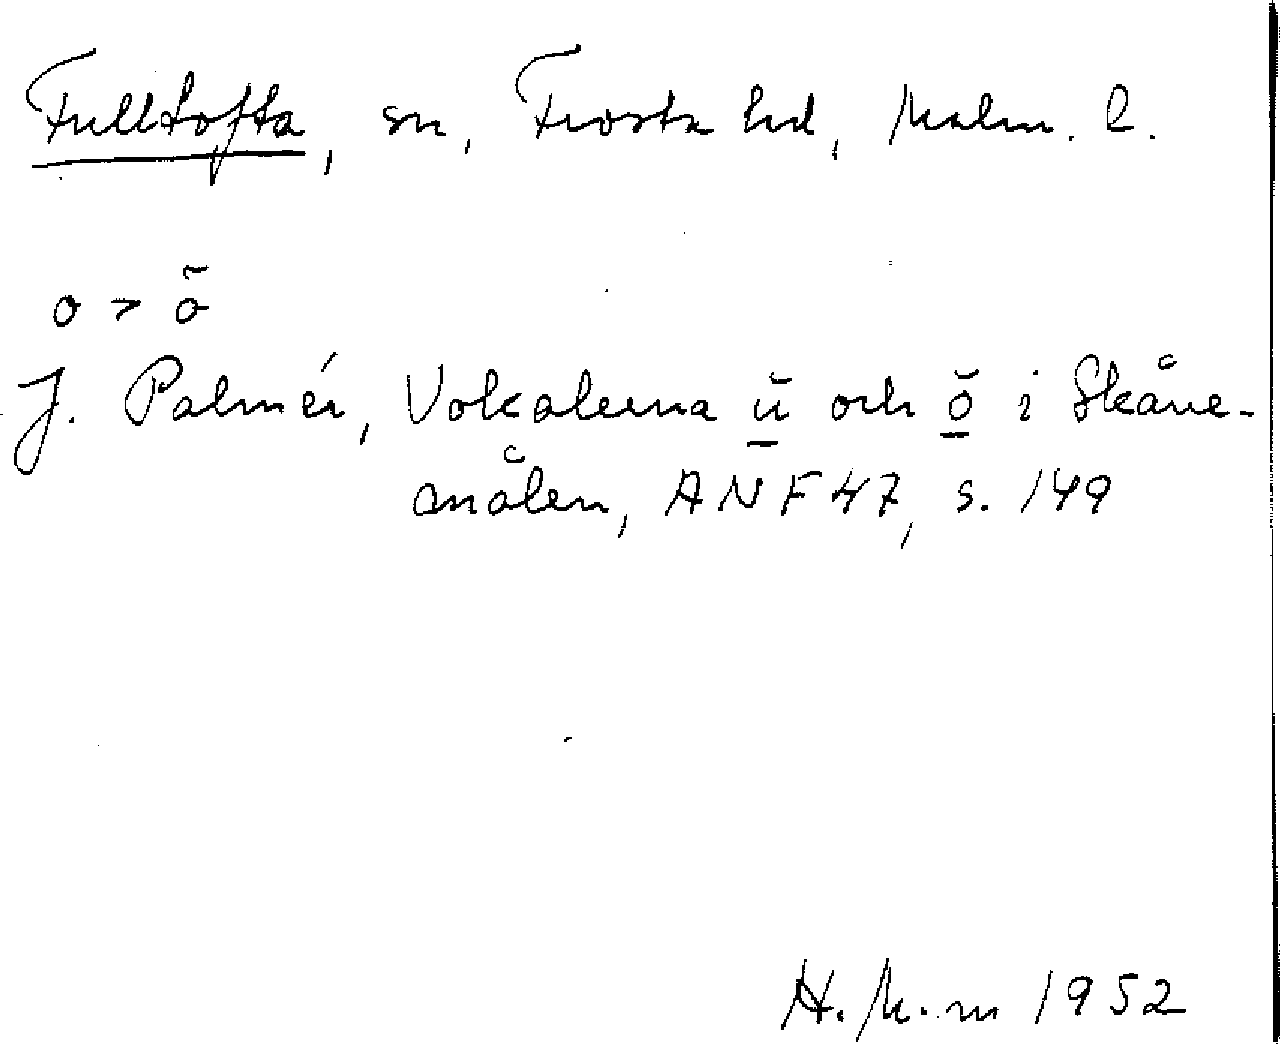 Fulltofta, sn, Frosta hd, Malm. l.
o > ō
J. Palmér, Vokalerna ŭ och ŏ i Skåne-
målen, ANF 47, s. 149
H. M-m 1952